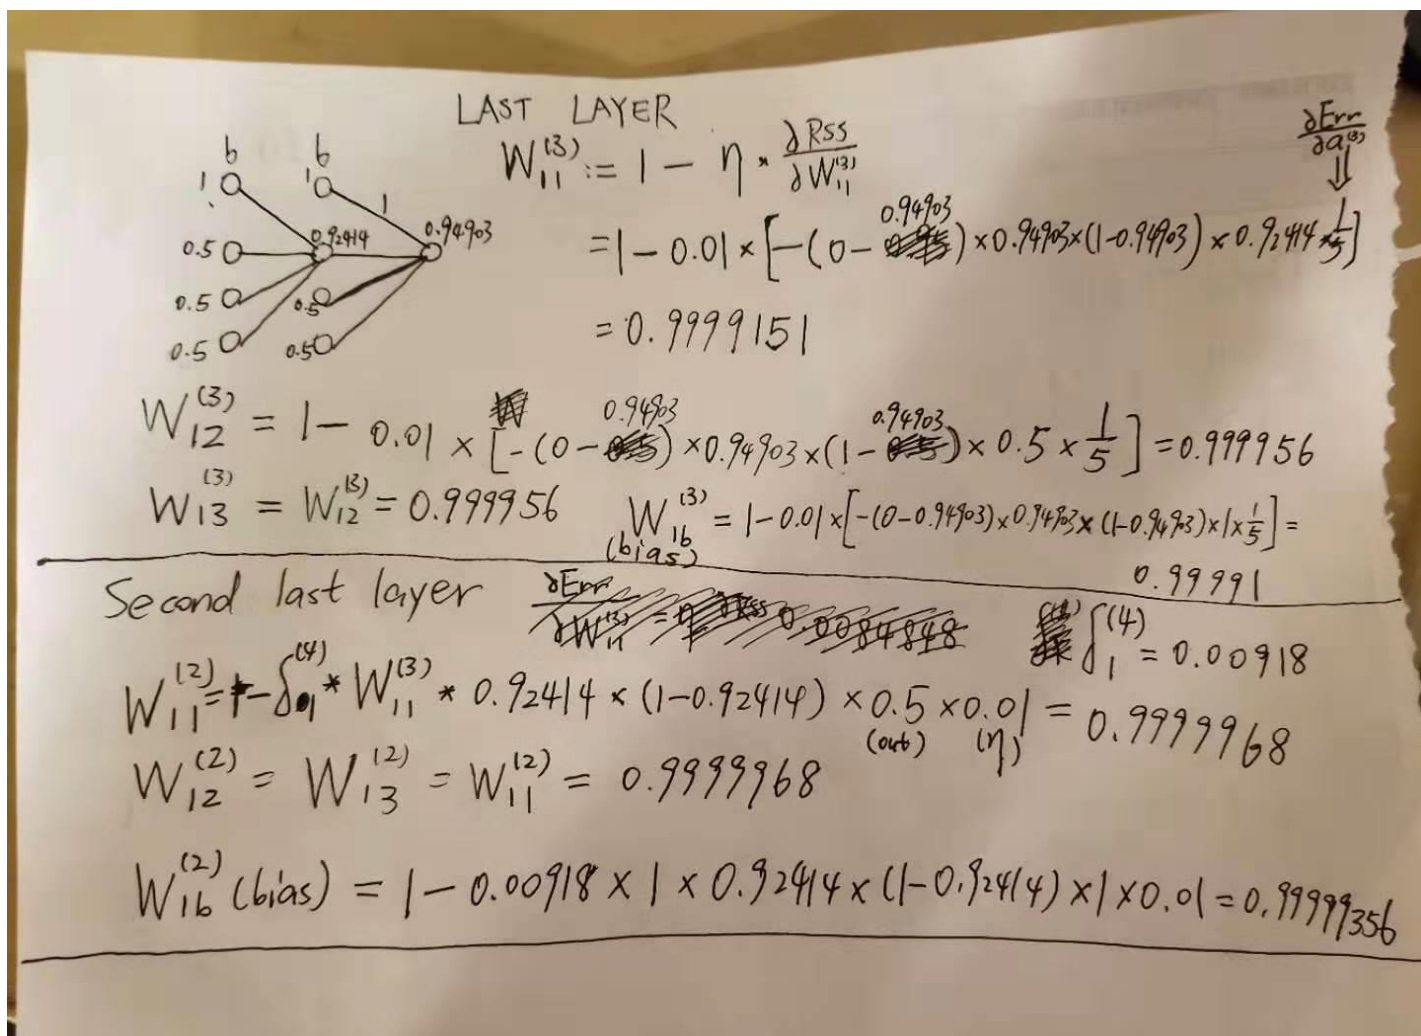 LAST LAYER
W₁₁⁽³⁾ := 1 − η * ∂RSS/∂W₁₁⁽³⁾
∂Err/∂a⁽³⁾
⇓
b b
1 1 1
0.5 0.92414 0.94903
0.5 0.5
0.5 0.5
0.94903
= 1 − 0.01 × [−(0 − ) × 0.94903 × (1−0.94903) × 0.92414 × 1/5]
= 0.9999151
W₁₂⁽³⁾ = 1 − 0.01 × [−(0 − 0.94903) × 0.94903 × (1 − 0.94903) × 0.5 × 1/5] = 0.999956
W₁₃⁽³⁾ = W₁₂⁽³⁾ = 0.999956
W₁b⁽³⁾ = 1 − 0.01 × [−(0−0.94903) × 0.94903 × (1−0.94903) × 1 × 1/5] =
(bias)
0.99991
Second last layer
∂Err/∂W₁₁⁽³⁾ = η ∂RSS 0.0084848
δ₁⁽⁴⁾ = 0.00918
W₁₁⁽²⁾ = 1 − δ₁⁽⁴⁾ * W₁₁⁽³⁾ * 0.92414 × (1−0.92414) × 0.5 × 0.01 = 0.9999968
(out) (η)
W₁₂⁽²⁾ = W₁₃⁽²⁾ = W₁₁⁽²⁾ = 0.9999968
W₁b⁽²⁾ (bias) = 1 − 0.00918 × 1 × 0.92414 × (1−0.92414) × 1 × 0.01 = 0.99999356